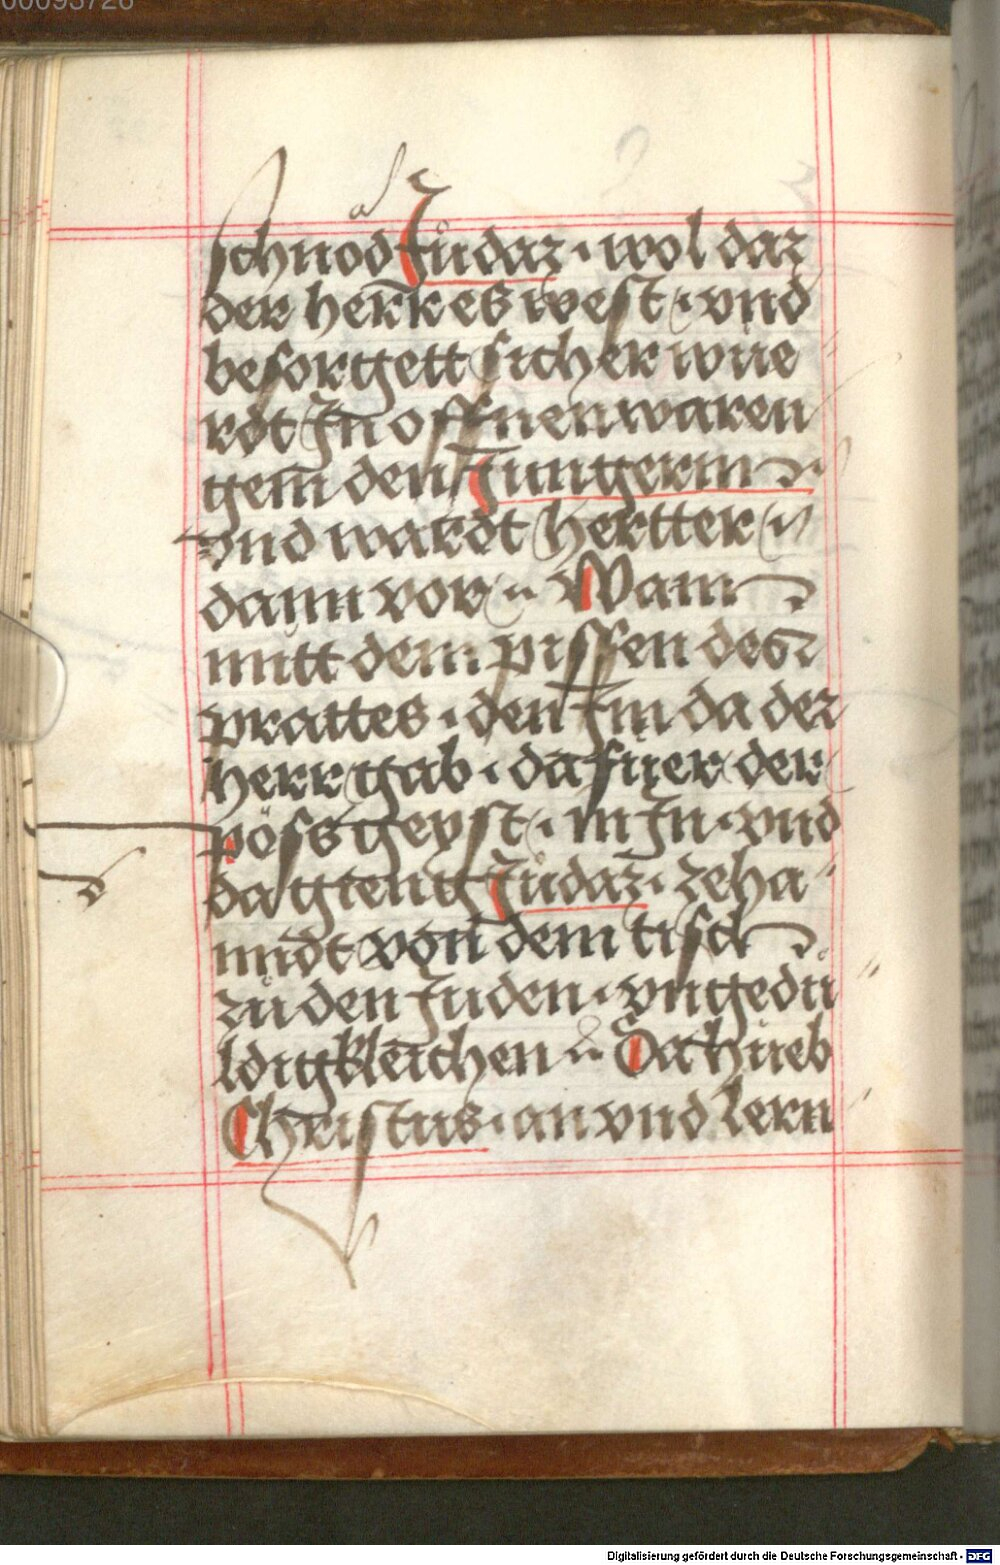 00095726
schnöd Jůdaz · wol daz
der herr es west · vnd
besorgett sich er wüe
rdt Jn offnen waren
gem̄ den Jungerm
vnd wardt hertter
dann vor Wann
mitt dem pissen des
prattes · den Im da der
herr gab · da fuer der
pöss geyst · in Jn · vnd
da gieng Jůdaz · zeha
nndt von dem tisch
zů den Juden · vngedu
ldigkleichen Da hueb
Christus · an vnd lern
Digitalisierung gefördert durch die Deutsche Forschungsgemeinschaft - DFG